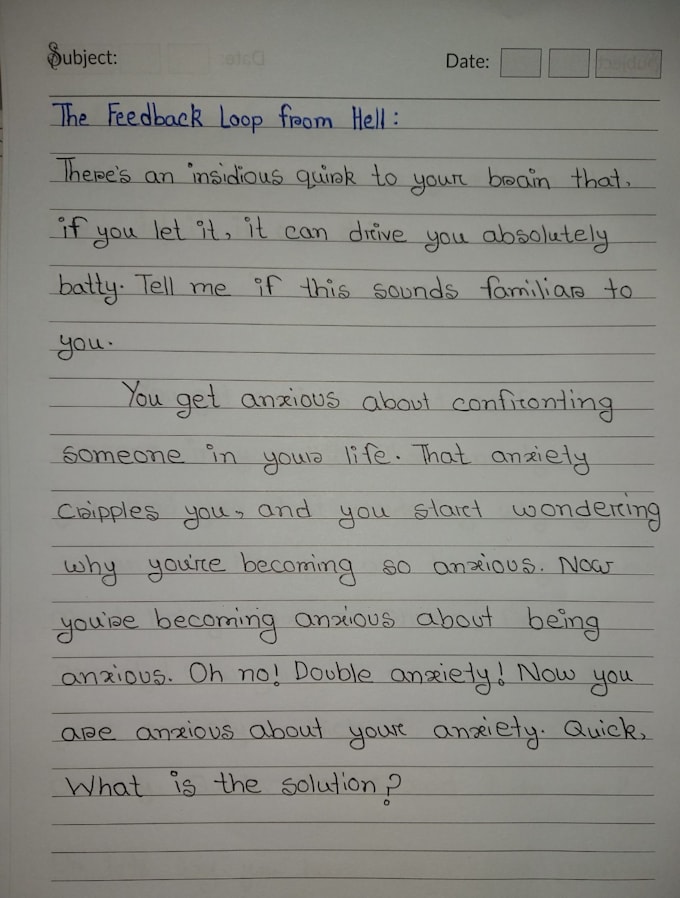 Subject:
Date:
The Feedback Loop from Hell:
There's an insidious quirk to your brain that,
if you let it, it can drive you absolutely
batty. Tell me if this sounds familiar to
you.
You get anxious about confronting
someone in your life. That anxiety
cripples you, and you start wondering
why you're becoming so anxious. Now
you're becoming anxious about being
anxious. Oh no! Double anxiety! Now you
are anxious about your anxiety. Quick,
What is the solution?